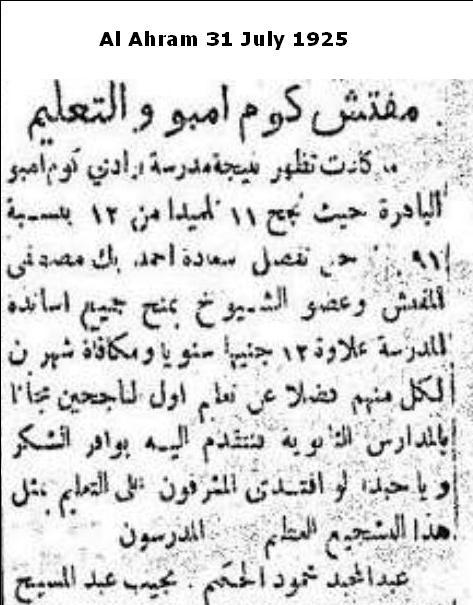 Al Ahram 31 July 1925
مفتش كوم امبو والتعليم
ما كادت تظهر نتيجة مدرسة وادي كوم امبو
الباهرة حيث نجح ١١ تلميذا من ١٢ بنسبة
٩١ حتى تفضل سعادة احمد بك مصطفى
المفتش وعضو الشيوخ بمنح جميع اساتذة
المدرسة علاوة ١٢ جنيها سنويا ومكافاة شهرين
لكل منهم فضلا عن تعليم اول الناجحين مجانا
بالمدارس الثانوية فنتقدم اليه بوافر الشكر
ويا حبذا لو اقتدى المشرفون على التعليم بمثل
هذا التشجيع العظيم المدرسون
عبد المجيد محمود . نجيب عبد المسيح